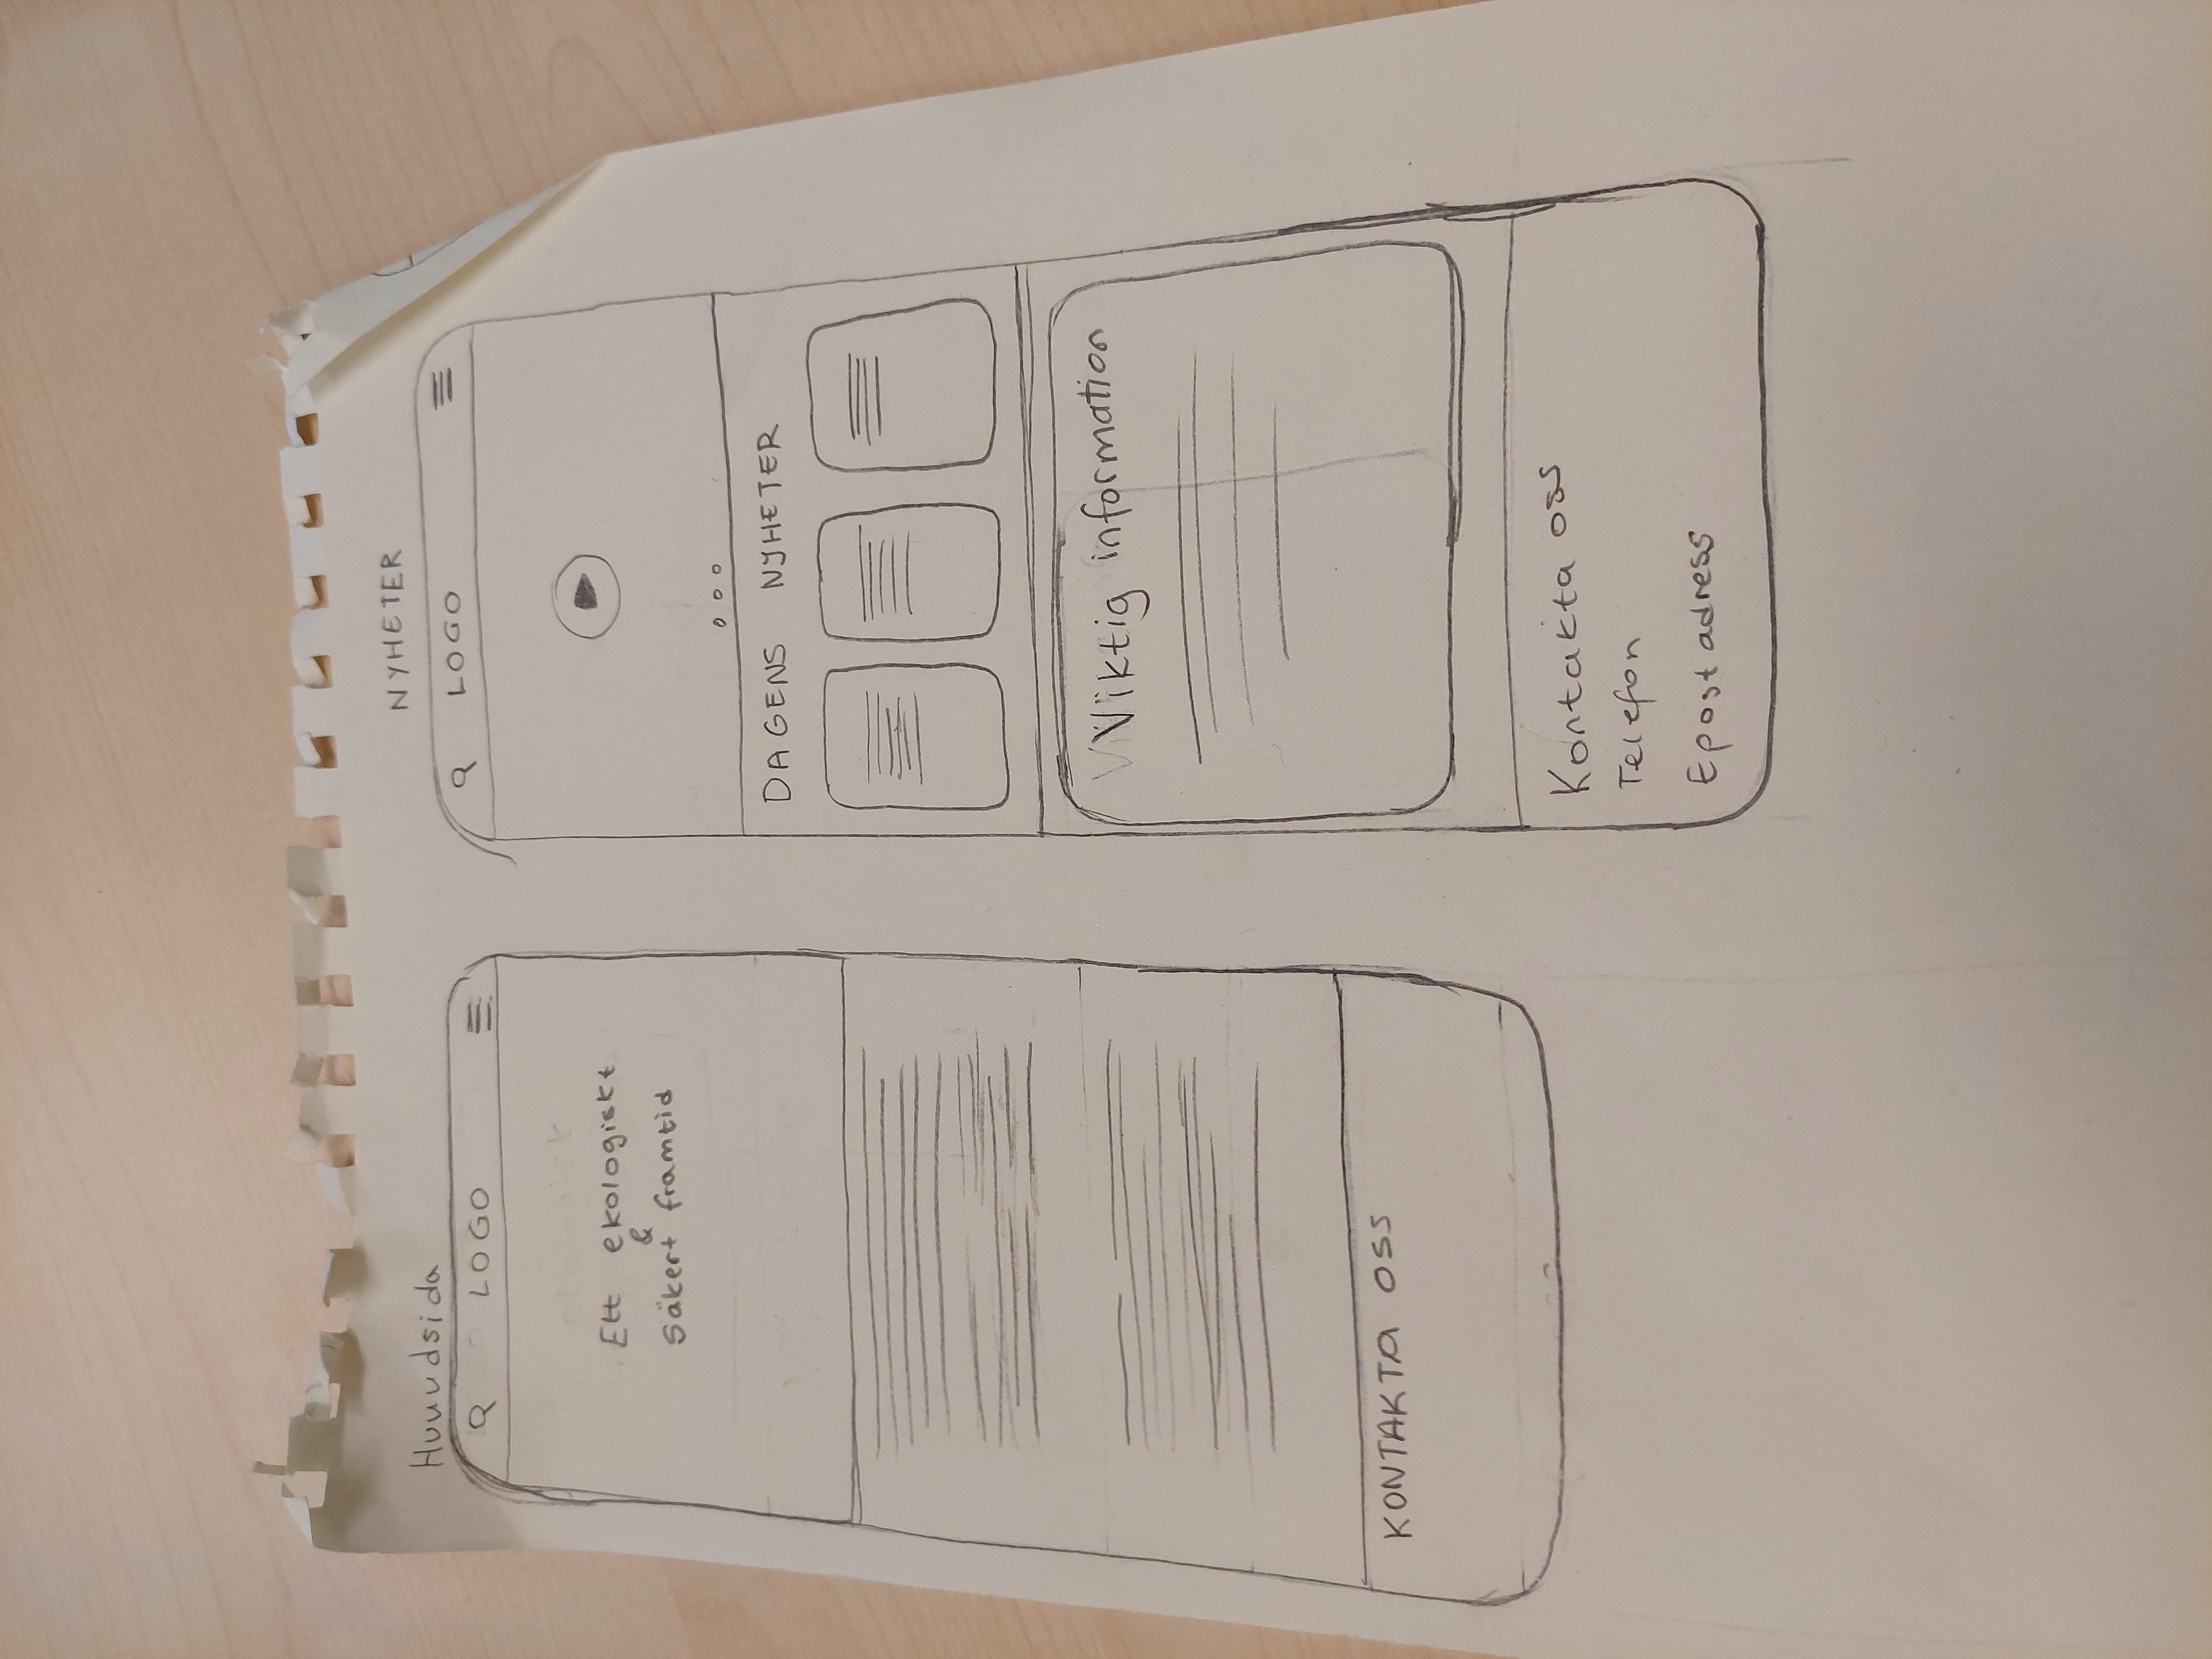 Huuudsida
LOGO
Ett ekologiskt
&
Säkert framtid
KONTAKTA OSS
NYHETER
LOGO
DAGENS NYHETER
Viktig information
Kontakta oss
Telefon
Epostadress